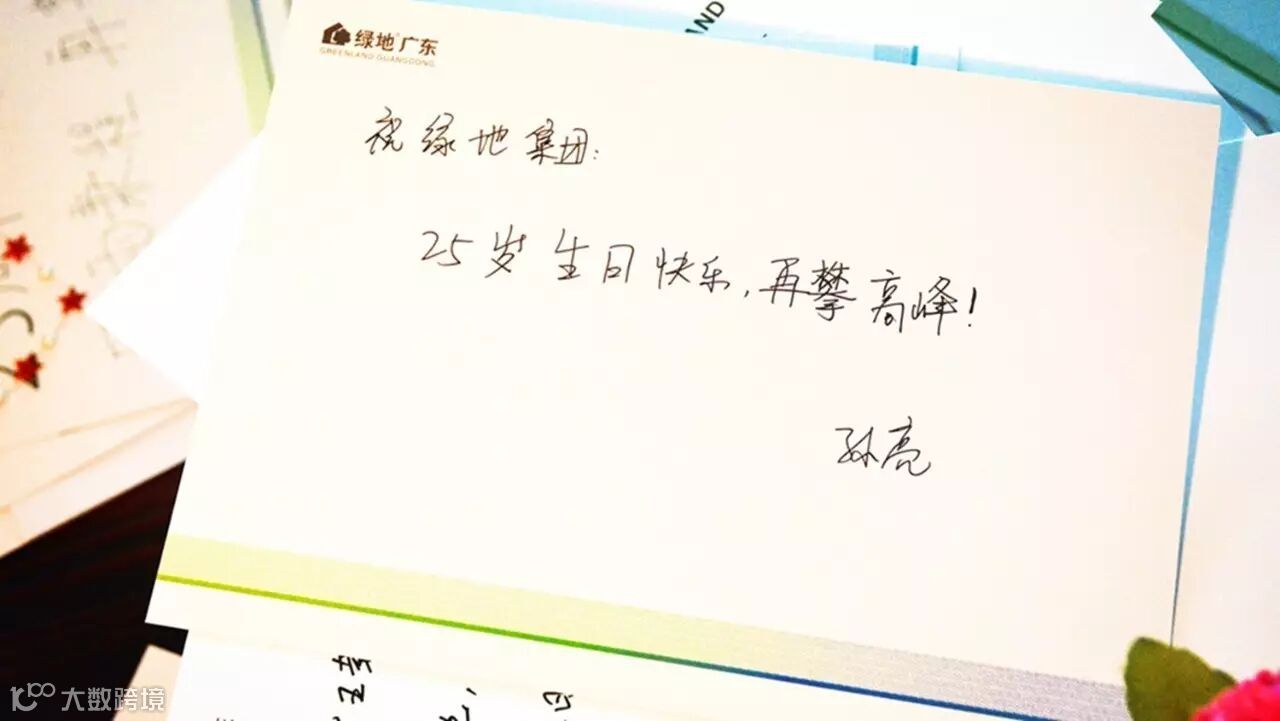 AND
绿地广东
GREENLAND GUANGDONG
祝绿地集团:
25岁生日快乐,再攀高峰!
孙亮
大数跨境